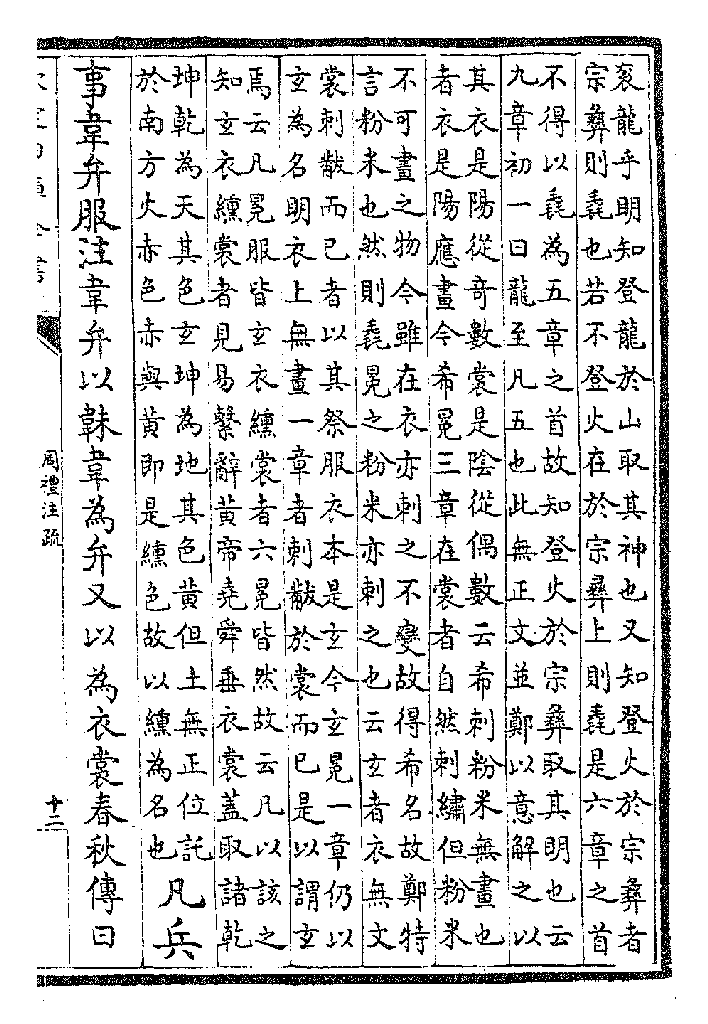 袞龍乎明知登龍於山取其神也又知登火於宗彝者
宗彝則毳也若不登火在於宗彝上則毳是六章之首
不得以毳為五章之首故知登火於宗彝取其明也云
九章初一曰龍至凡五也此無正文並鄭以意解之以
其衣是陽從奇數裳是陰從偶數云希刺粉米無畫也
者衣是陽應畫今希冕三章在裳者自然刺繡但粉米
不可畫之物今雖在衣亦刺之不變故得希名故鄭特
言粉米也然則毳冕之粉米亦刺之也云玄者衣無文
裳刺黻而已者以其祭服衣本是玄今玄冕一章仍以
玄為名明衣上無畫一章者刺黻於裳而已是以謂玄
焉云凡冕服皆玄衣纁裳者六冕皆然故云凡以該之
知玄衣纁裳者見易繫辭黃帝堯舜垂衣裳蓋取諸乾
坤乾為天其色玄坤為地其色黃但土無正位託
於南方火赤色赤與黃即是纁色故以纁為名也
凡兵
事韋弁服注韋弁以韎韋為弁又以為衣裳春秋傳曰
周禮注疏
十二